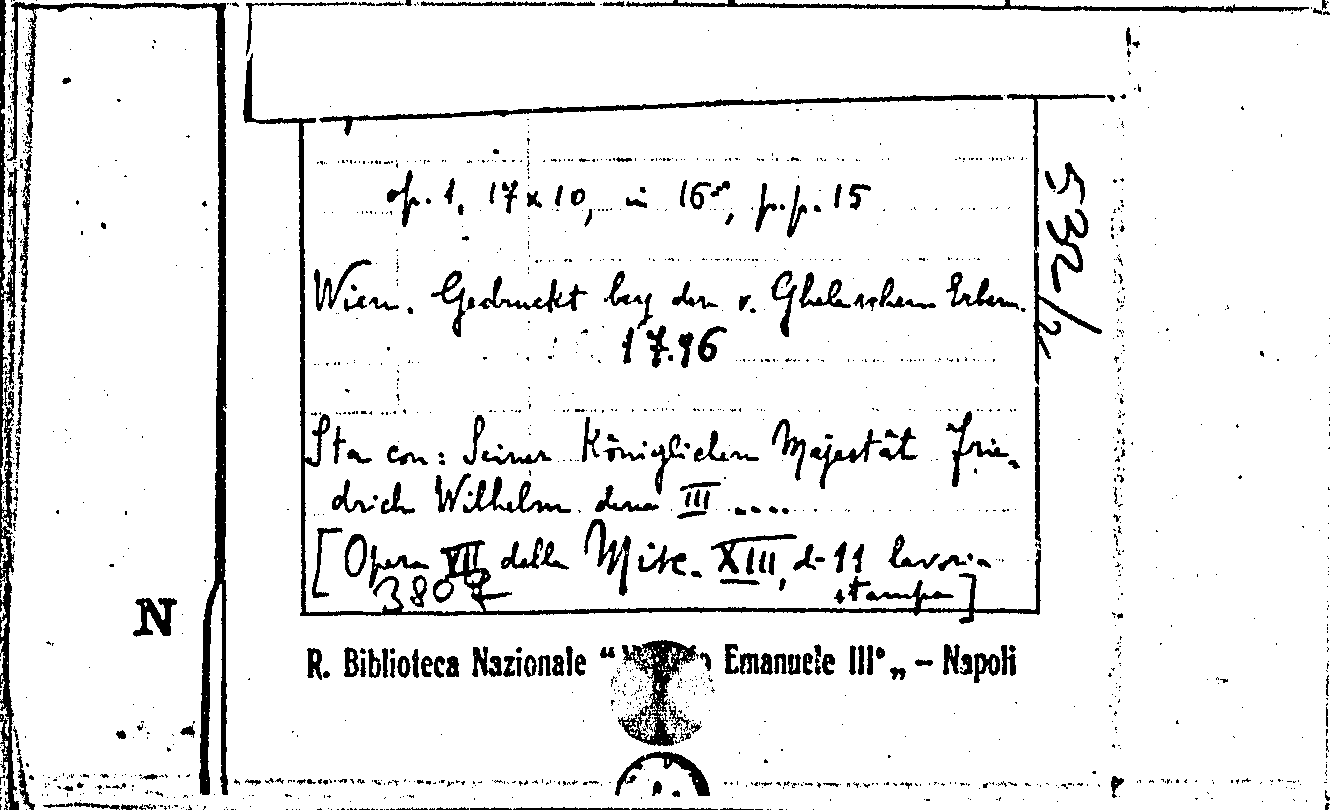 op. 1, 17 x 10, in 16°, p.p. 15
Wien. Gedruckt bey den v. Ghelenschen Erben.
1796
Sta con: Seiner Königlichen Majestät Frie-
drich Wilhelm dem III ....
[Opera VII della Misc. XIII, di 11 lavori a
stampa]
3807
532/2
N
R. Biblioteca Nazionale “ Emanuele III° „ - Napoli